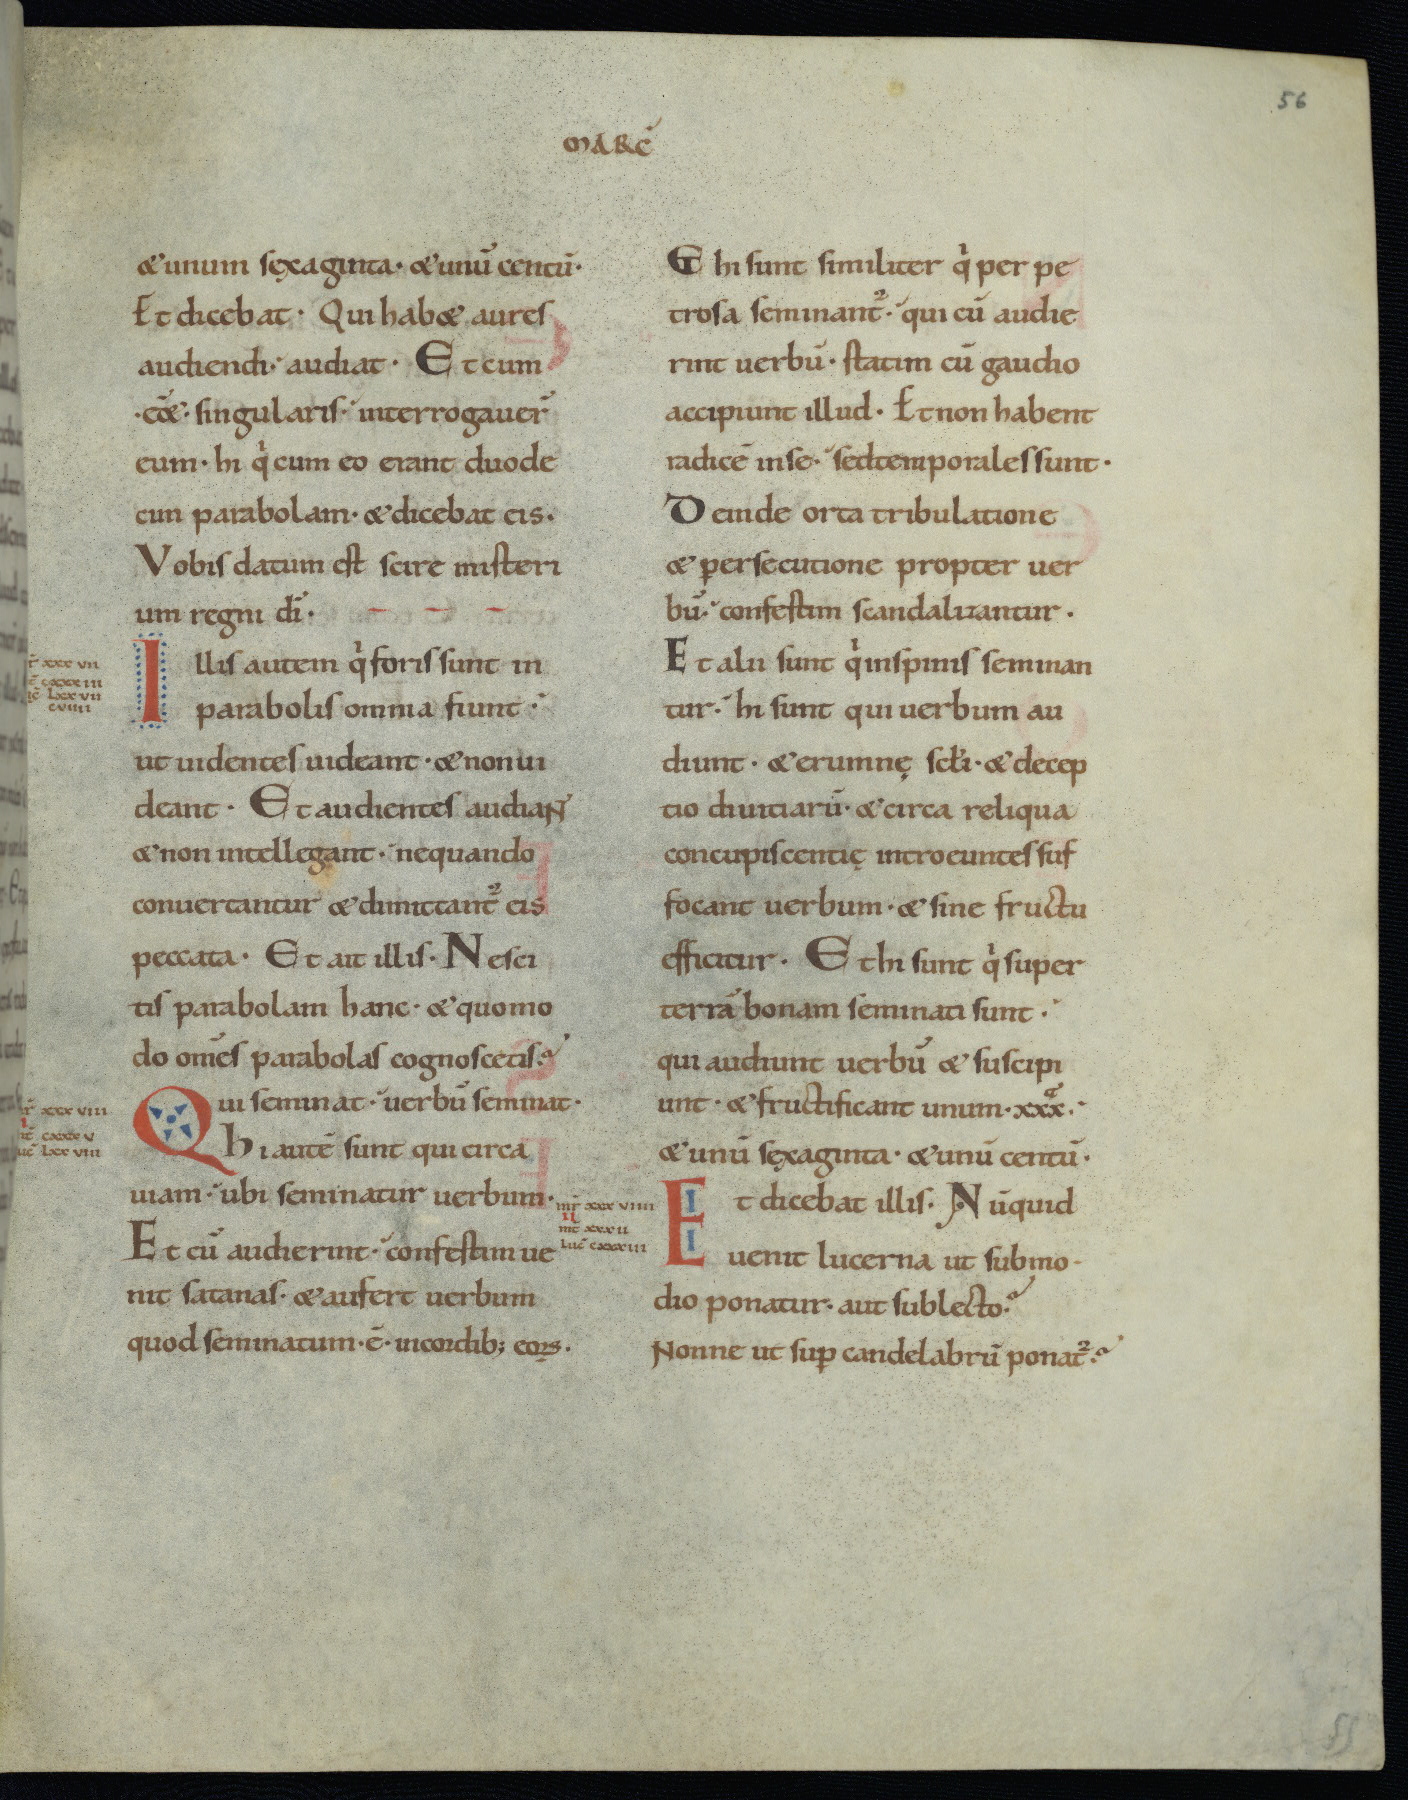 56
MARC̄
& unum sęxaginta· & unū centū·
Et dicebat· Qui hab& aures
audiendi· audiat· Et cum
·eēt· singularis· interrogauer̄
eum· hi q̇ cum eo erant duode
cim parabolam· & dicebat eis·
Vobis datum est scire misteri
um regni dī·
Illis autem q̇ foris sunt in
parabolis omnia fiunt·
ut uidentes uideant· & non ui
deant· Et audientes audiant
& non intellegant· nequando
conuertantur & dimittant² eis
peccata· Et ait illis· Nesci
tis parabolam hanc· & quomo
do om̄s parabolas cognoscetis?
Qui seminat· uerbū seminat·
Hi autē sunt qui circa
uiam· ubi seminatur uerbum·
Et cū audierint· confestim ue
nit satanas· & aufert uerbum
quod seminatum·ē· in cordib; eoꝝ·
xxx vii
cxxxiii
lxx vii
cviiii
xxx viii
cxxx v
lxx viii
Et hi sunt similiter q̇ per pe
trosa seminant²· qui cū audie
rint uerbū· statim cū gaudio
accipiunt illud· Et non habent
radicē in se· sed temporales sunt·
Deinde orta tribulatione
& persecutione propter uer
bū· confestim scandalizantur·
Et alii sunt q̇ in spinis seminan
tur· hi sunt qui uerbum au
diunt· & erumnę scłi· & decep
tio diuitiarū· & circa reliqua
concupiscentię introeuntes suf
focant uerbum· & sine fructu
efficitur· Et hi sunt q̇ super
terrā bonam seminati sunt·
qui audiunt uerbū & suscipi
unt· & fructificant unum· xxx·
& unū sęxaginta· & unū centū·
Et dicebat illis· Nūquid
uenit lucerna ut sub mo-
dio ponatur· aut sub lecto?
Nonne ut sup candelabrū ponat²?
mr̄ xxx viiii
ii
mt xxxii
luc̄ cxxxiii
55